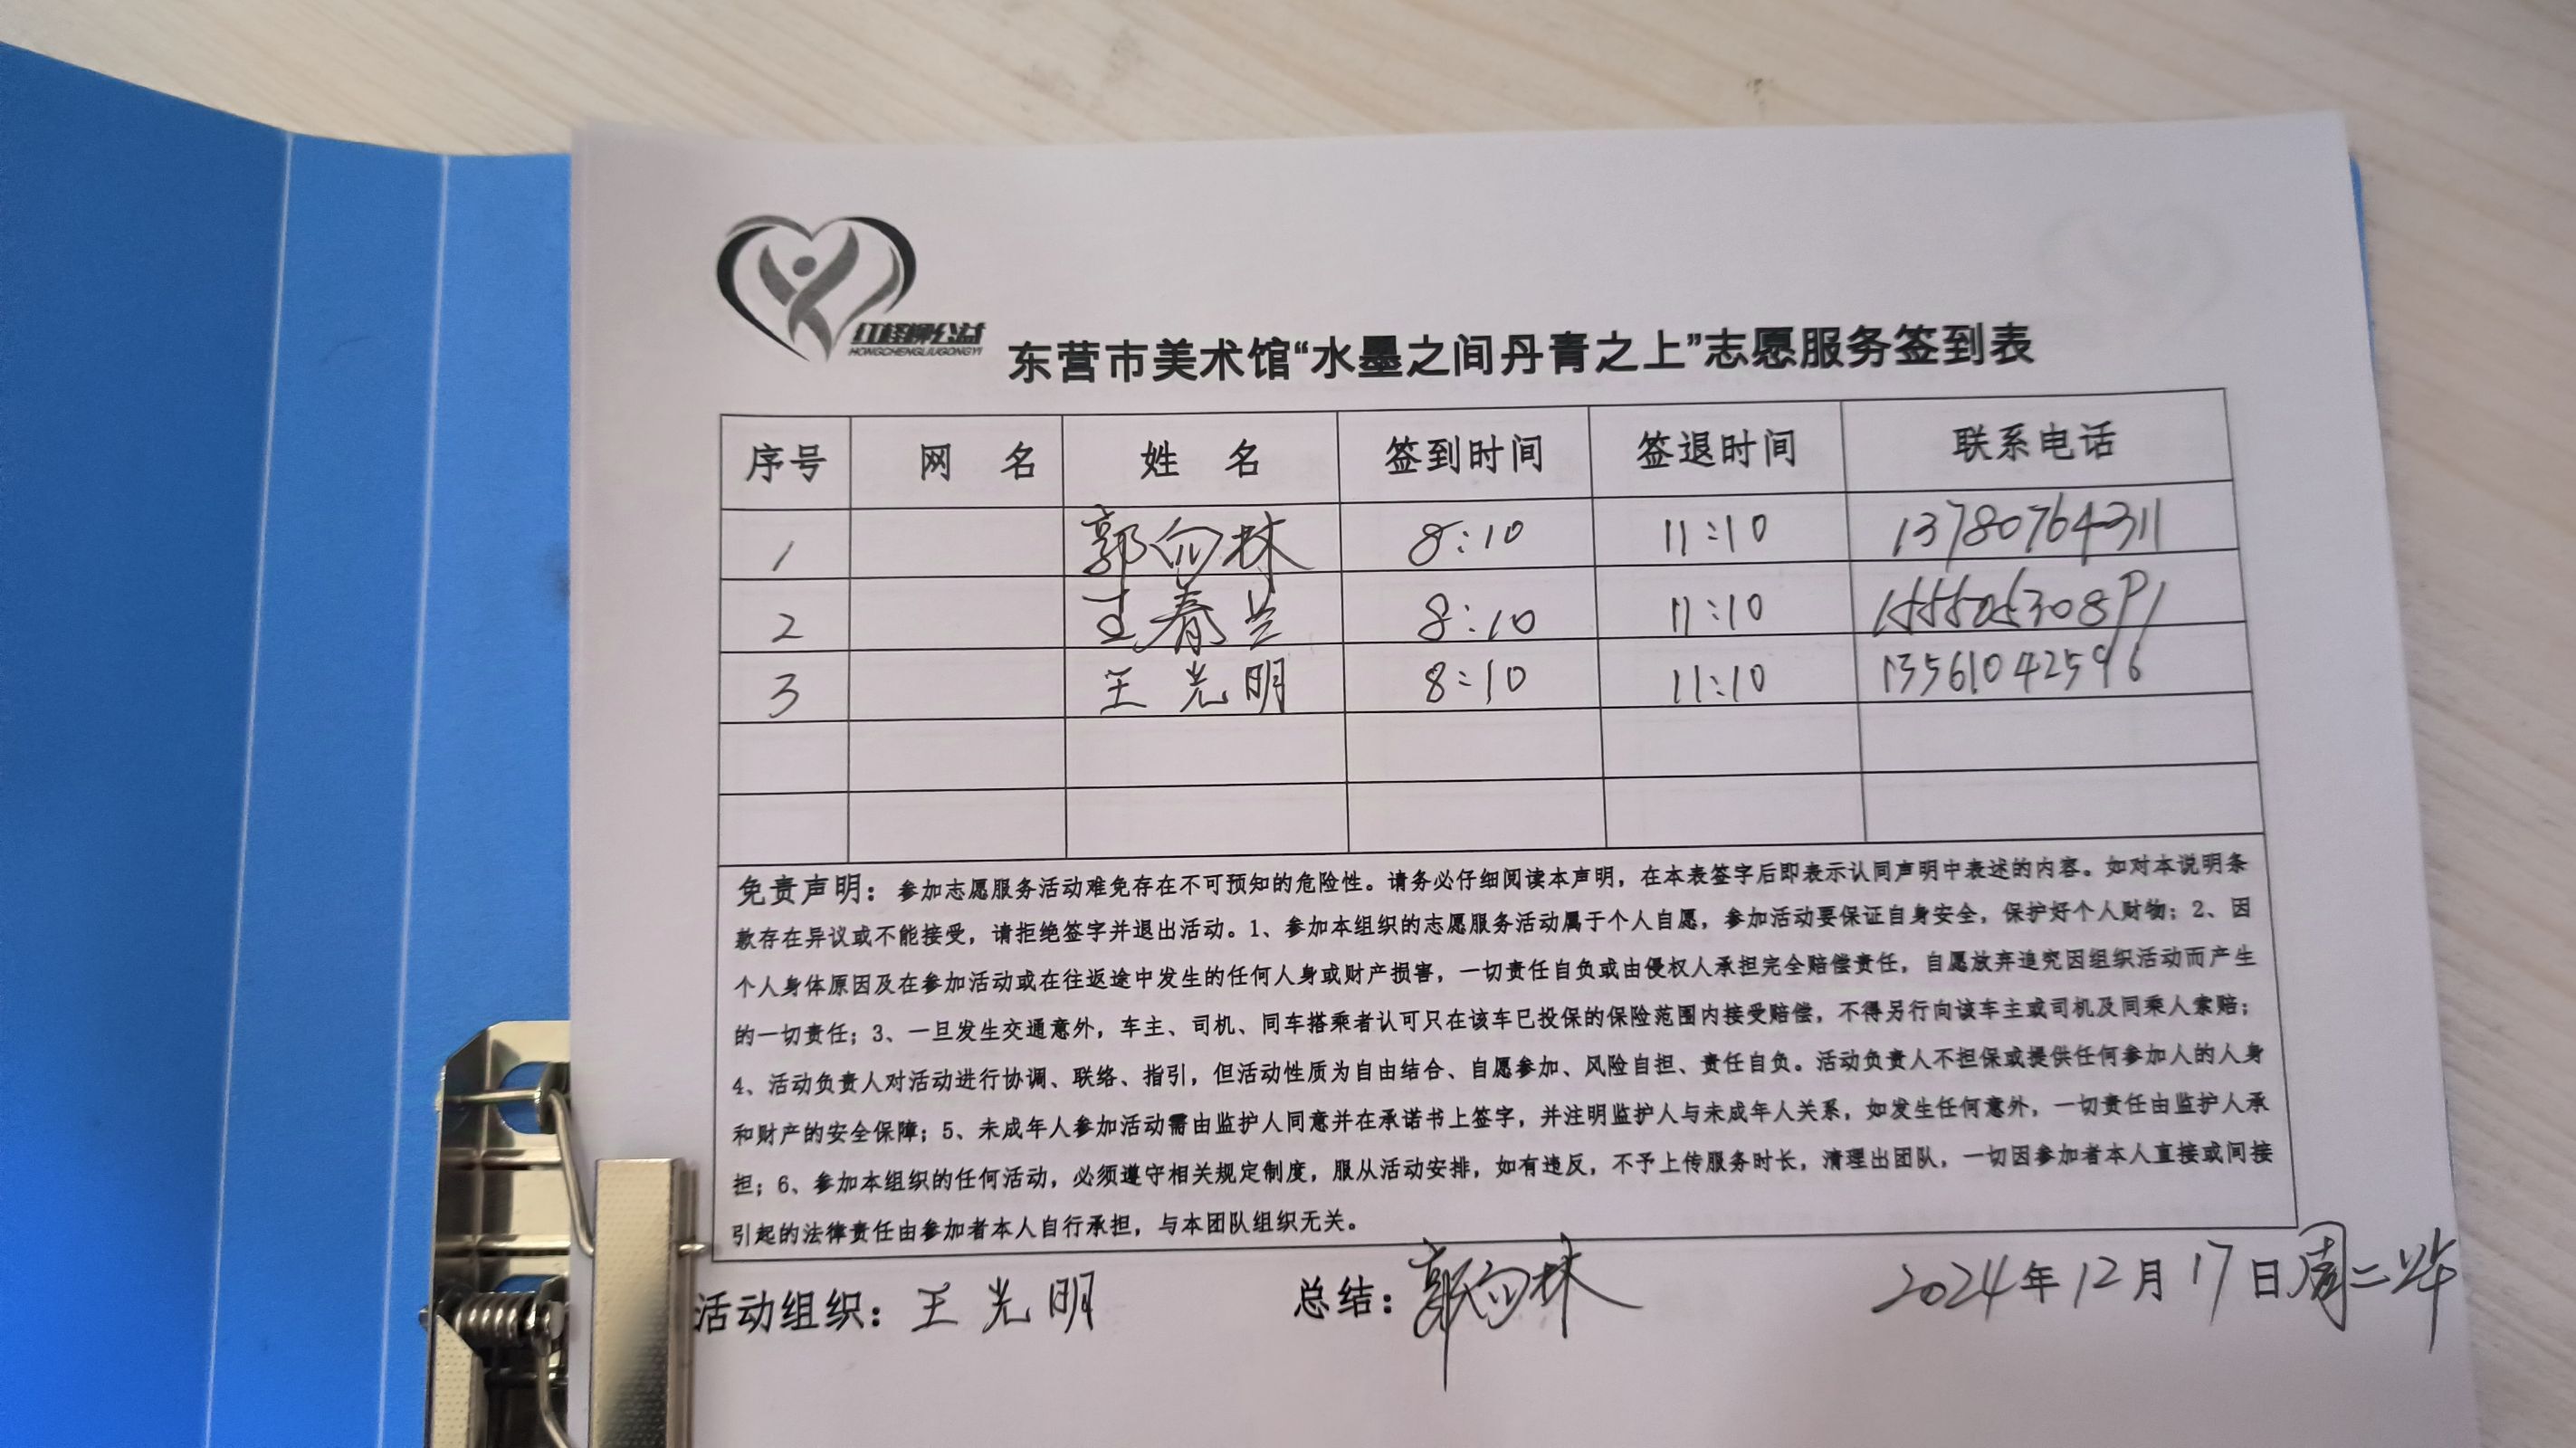 红柽柳公益
HONGCHENGLIUGONGYI
东营市美术馆“水墨之间丹青之上”志愿服务签到表
序号 网 名 姓 名 签到时间 签退时间 联系电话
1 郭向林 8:10 11:10 13780764311
2 王春兰 8:10 11:10
3 王光明 8:10 11:10 13561042596
免责声明：参加志愿服务活动难免存在不可预知的危险性。请务必仔细阅读本声明，在本表签字后即表示认同声明中表述的内容。如对本说明条
款存在异议或不能接受，请拒绝签字并退出活动。1、参加本组织的志愿服务活动属于个人自愿，参加活动要保证自身安全，保护好个人财物；2、因
个人身体原因及在参加活动或在往返途中发生的任何人身或财产损害，一切责任自负或由侵权人承担完全赔偿责任，自愿放弃追究因组织活动而产生
的一切责任；3、一旦发生交通意外，车主、司机、同车搭乘者认可只在该车已投保的保险范围内接受赔偿，不得另行向该车主或司机及同乘人索赔；
4、活动负责人对活动进行协调、联络、指引，但活动性质为自由结合、自愿参加、风险自担、责任自负。活动负责人不担保或提供任何参加人的人身
和财产的安全保障；5、未成年人参加活动需由监护人同意并在承诺书上签字，并注明监护人与未成年人关系，如发生任何意外，一切责任由监护人承
担；6、参加本组织的任何活动，必须遵守相关规定制度，服从活动安排，如有违反，不予上传服务时长，清理出团队，一切因参加者本人直接或间接
引起的法律责任由参加者本人自行承担，与本团队组织无关。
活动组织：王光明 总结：郭向林 2024年12月17日周二